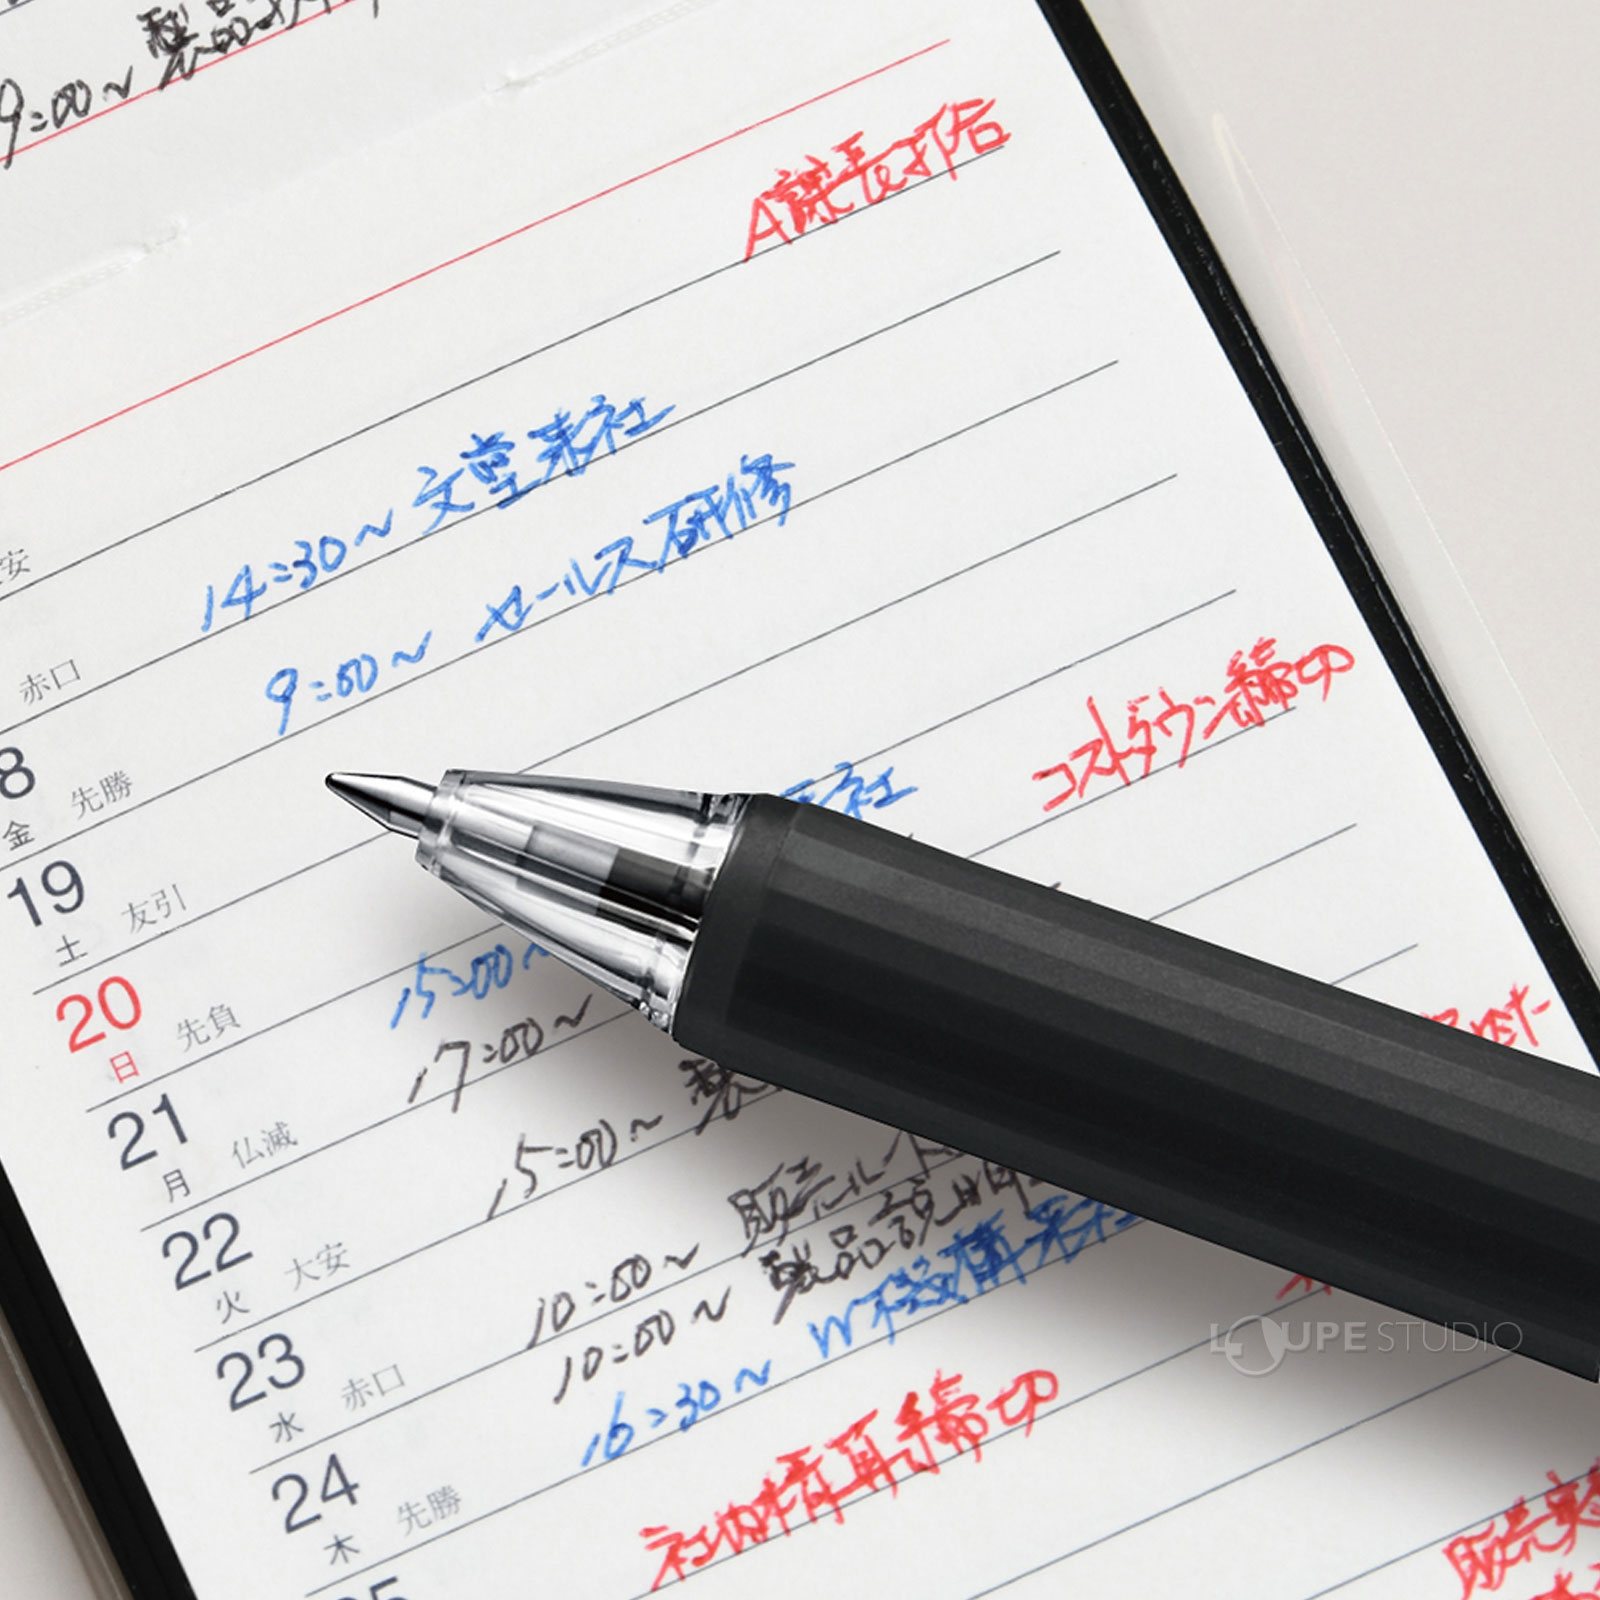 製品
9:00〜
A課長打合
安
14:30〜 文堂来社
赤口
9:00〜 セールス研修
8
金 先勝
コストダウン締切
19
土 友引
来社
20
日 先負
15:00〜
17:00〜
21
月 仏滅
15:00〜 製
22
火 大安
10:00〜 販売ルート
10:00〜 製品説明
23
水 赤口
16:30〜 W機構来社
24
木 先勝
社内情報締切
販売
LOUPE STUDIO